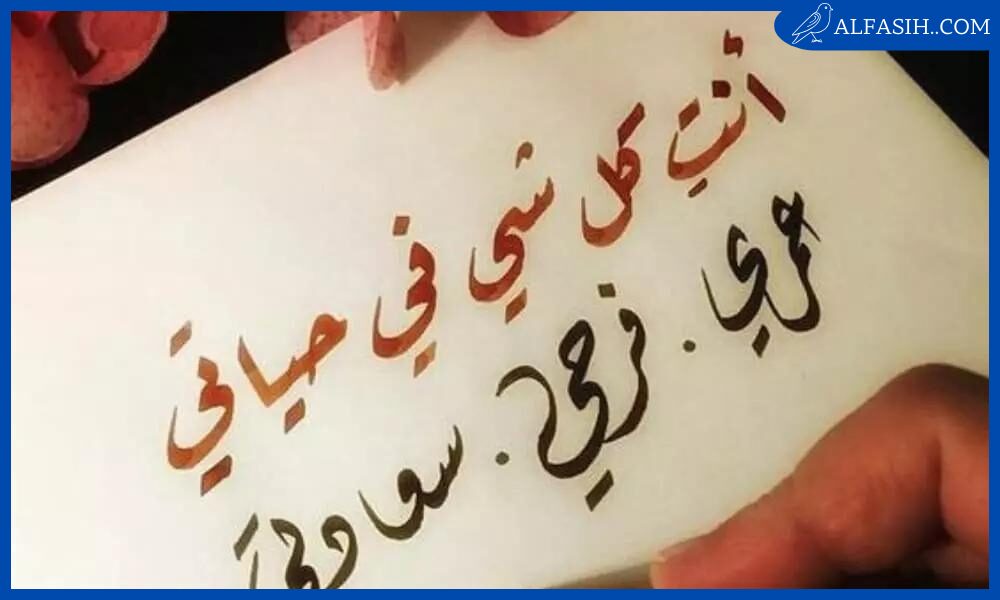 ALFASIH.COM
أنتِ كل شي في حياتي
عمري . فرحي . سعادتي